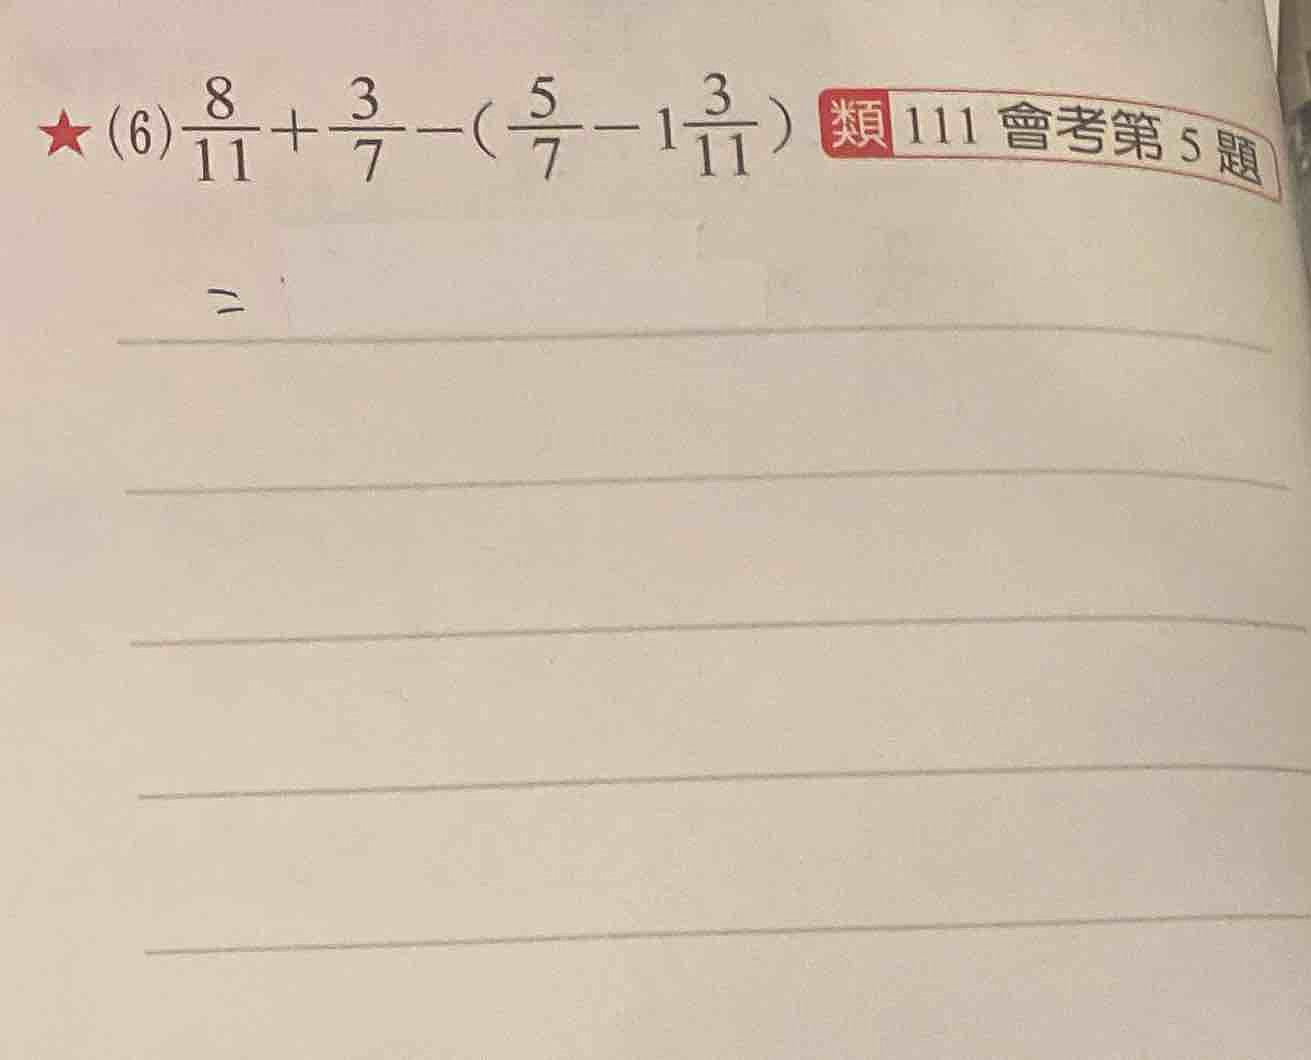 ★(6) 8/11 + 3/7 − ( 5/7 − 1 3/11 ) 類 111 會考第 5 題
=